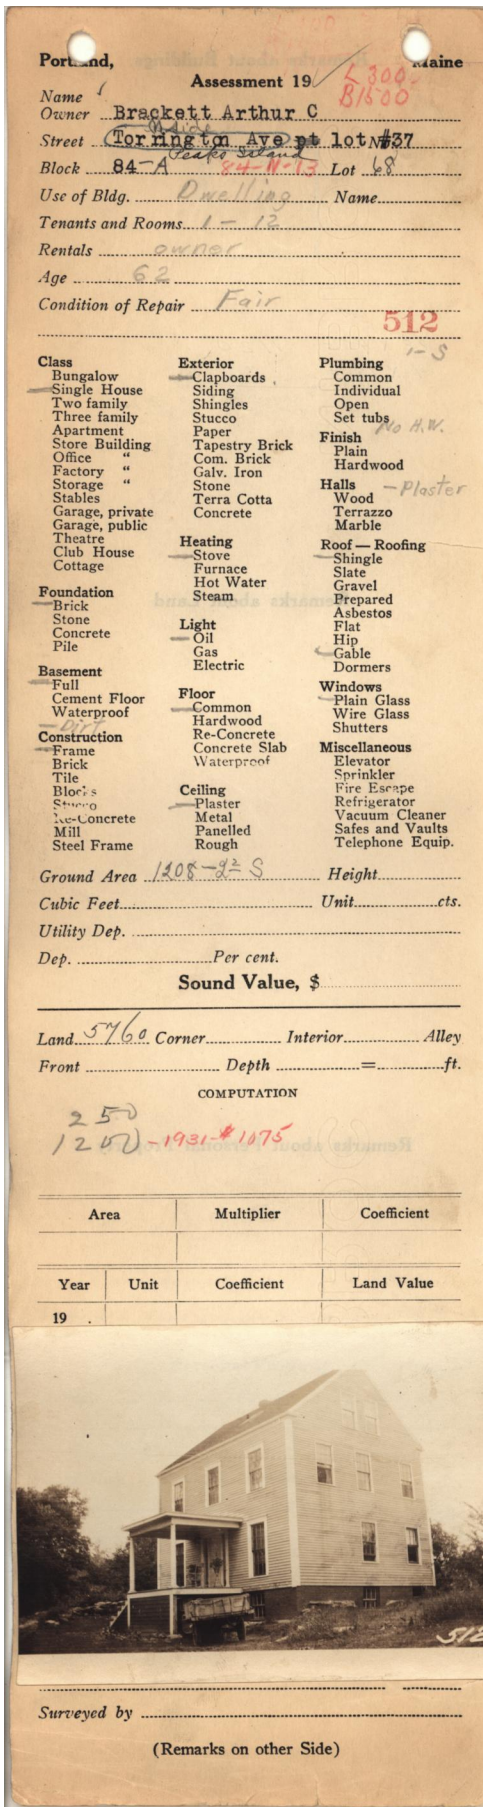 Portland, Maine
Assessment 19 L 300
B1500
Name
Owner Brackett Arthur C
N side
Street Torrington Ave pt lot #37
Peaks Island
Block 84-A 84-N-13 Lot 68
Use of Bldg. Dwelling Name
Tenants and Rooms 1 - 12
Rentals owner
Age 62
Condition of Repair Fair
512
1-S
Class
Bungalow
Single House
Two family
Three family
Apartment
Store Building
Office "
Factory "
Storage "
Stables
Garage, private
Garage, public
Theatre
Club House
Cottage
Foundation
Brick
Stone
Concrete
Pile
Basement
Full
Cement Floor
Waterproof
- Dirt
Construction
Frame
Brick
Tile
Blocks
Stucco
Re-Concrete
Mill
Steel Frame
Exterior
Clapboards
Siding
Shingles
Stucco
Paper
Tapestry Brick
Com. Brick
Galv. Iron
Stone
Terra Cotta
Concrete
Heating
Stove
Furnace
Hot Water
Steam
Light
Oil
Gas
Electric
Floor
Common
Hardwood
Re-Concrete
Concrete Slab
Waterproof
Ceiling
Plaster
Metal
Panelled
Rough
Plumbing
Common
Individual
Open
Set tubs
No H.W.
Finish
Plain
Hardwood
Halls - Plaster
Wood
Terrazzo
Marble
Roof — Roofing
Shingle
Slate
Gravel
Prepared
Asbestos
Flat
Hip
Gable
Dormers
Windows
Plain Glass
Wire Glass
Shutters
Miscellaneous
Elevator
Sprinkler
Fire Escape
Refrigerator
Vacuum Cleaner
Safes and Vaults
Telephone Equip.
Ground Area 1208 - 2½ S Height
Cubic Feet Unit cts.
Utility Dep.
Dep. Per cent.
Sound Value, $
Land 5760 Corner Interior Alley
Front Depth = ft.
COMPUTATION
250
1200 - 1931 - $1075
Area Multiplier Coefficient
Year Unit Coefficient Land Value
19 .
512
Surveyed by
(Remarks on other Side)